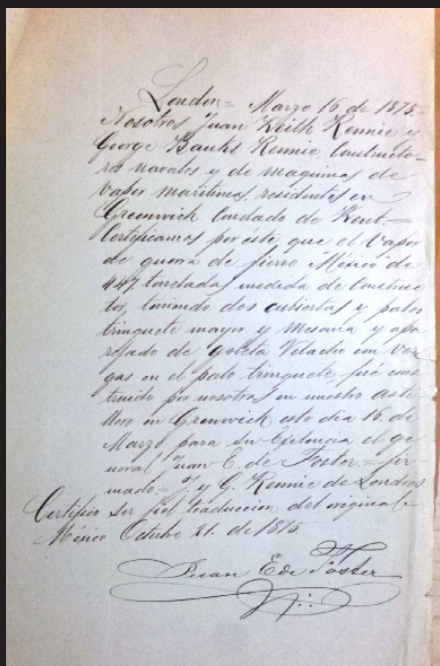 London = Marzo 16. de 1875 =
Nosotros Juan Keith Rennie y
George Banks Rennie, Constructo-
res navales y de maquinas de
vapor maritimas, residentes en
Greenwich Condado de Kent =
Certificamos por éste que el Vapor
de guerra de fierro México de
447 toneladas medida de Construc-
tor, teniendo dos cubiertas y palos
trinquete mayor y Mesana y apa-
rejado de goleta Velacho con Ver-
gas en el palo trinquete, fué cons-
truido por nosotros en nuestro asti-
llero in Greenwich este dia 16. de
Marzo para Su Exelencia el ge-
neral Juan E. de Foster. = fir-
mado = J. y G. Rennie de Londres
Certifico ser fiel traduccion del original =
México Octubre 21. de 1875.
Juan E de Foster